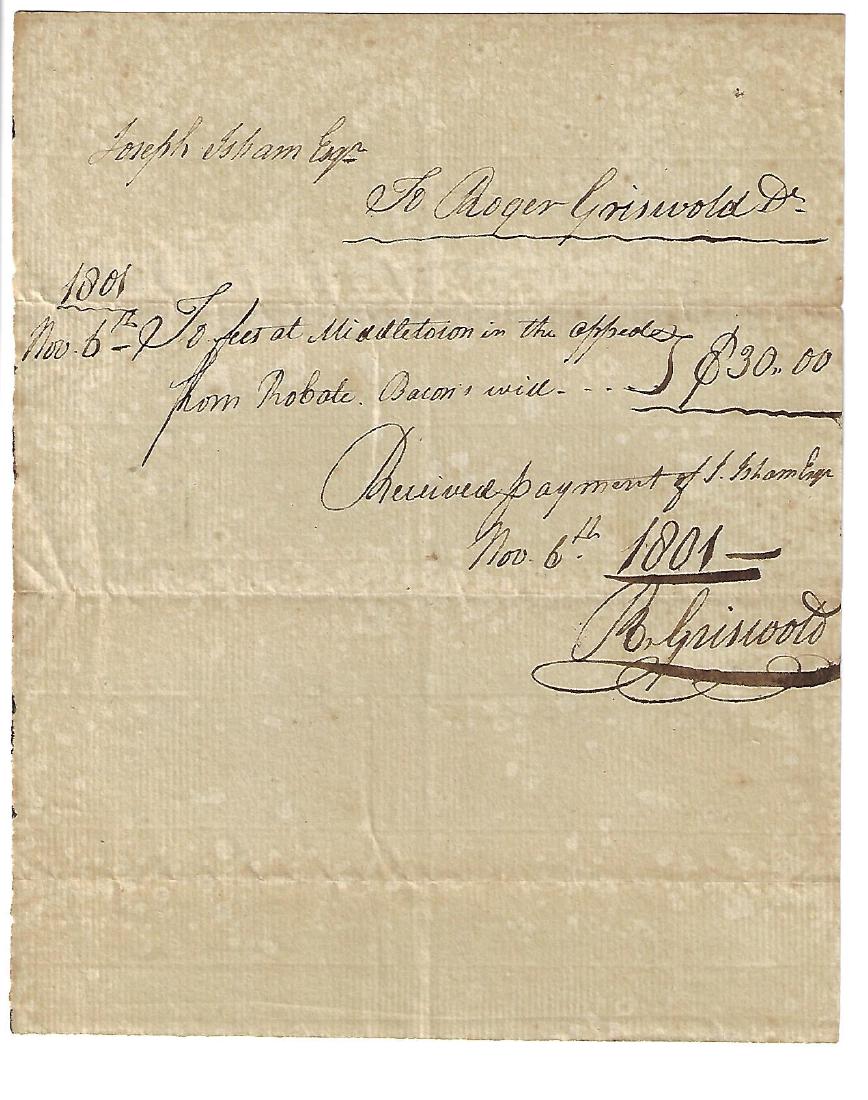 Joseph Isham Esqr
To Roger Griswold Dr
1801
Nov. 6th To fees at Middletown in the appeal
from Probate. Bacon's will - - - } $30.00
Received payment of J. Isham Esqr
Nov. 6th. 1801 —
R. Griswold